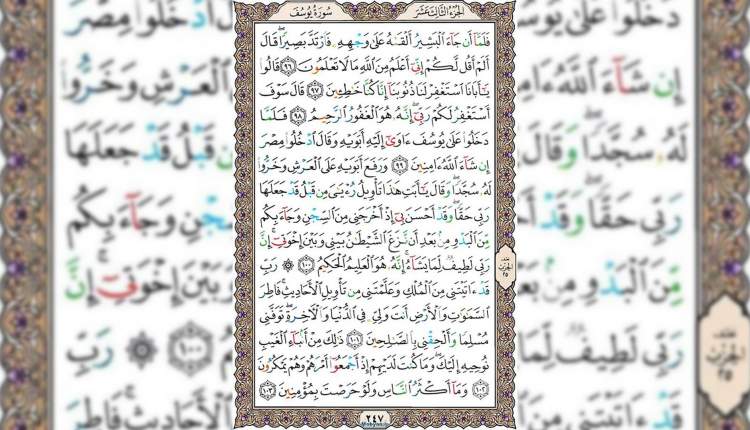 الجزء الثالث عشر
سورة يوسف
فَلَمَّآ أَن جَآءَ ٱلْبَشِيرُ أَلْقَىٰهُ عَلَىٰ وَجْهِهِۦ فَٱرْتَدَّ بَصِيرًا ۖ قَالَ
أَلَمْ أَقُل لَّكُمْ إِنِّىٓ أَعْلَمُ مِنَ ٱللَّهِ مَا لَا تَعْلَمُونَ ٩٦ قَالُوا۟
يَـٰٓأَبَانَا ٱسْتَغْفِرْ لَنَا ذُنُوبَنَآ إِنَّا كُنَّا خَـٰطِـِٔينَ ٩٧ قَالَ سَوْفَ
أَسْتَغْفِرُ لَكُمْ رَبِّىٓ ۖ إِنَّهُۥ هُوَ ٱلْغَفُورُ ٱلرَّحِيمُ ٩٨ فَلَمَّا
دَخَلُوا۟ عَلَىٰ يُوسُفَ ءَاوَىٰٓ إِلَيْهِ أَبَوَيْهِ وَقَالَ ٱدْخُلُوا۟ مِصْرَ
إِن شَآءَ ٱللَّهُ ءَامِنِينَ ٩٩ وَرَفَعَ أَبَوَيْهِ عَلَى ٱلْعَرْشِ وَخَرُّوا۟
لَهُۥ سُجَّدًا ۖ وَقَالَ يَـٰٓأَبَتِ هَـٰذَا تَأْوِيلُ رُءْيَـٰىَ مِن قَبْلُ قَدْ جَعَلَهَا
رَبِّى حَقًّا ۖ وَقَدْ أَحْسَنَ بِىٓ إِذْ أَخْرَجَنِى مِنَ ٱلسِّجْنِ وَجَآءَ بِكُم
مِّنَ ٱلْبَدْوِ مِنۢ بَعْدِ أَن نَّزَغَ ٱلشَّيْطَـٰنُ بَيْنِى وَبَيْنَ إِخْوَتِىٓ ۚ إِنَّ
رَبِّى لَطِيفٌ لِّمَا يَشَآءُ ۚ إِنَّهُۥ هُوَ ٱلْعَلِيمُ ٱلْحَكِيمُ ١٠٠ ۞ رَبِّ
قَدْ ءَاتَيْتَنِى مِنَ ٱلْمُلْكِ وَعَلَّمْتَنِى مِن تَأْوِيلِ ٱلْأَحَادِيثِ ۚ فَاطِرَ
ٱلسَّمَـٰوَٰتِ وَٱلْأَرْضِ أَنتَ وَلِىِّۦ فِى ٱلدُّنْيَا وَٱلْـَٔاخِرَةِ ۖ تَوَفَّنِى
مُسْلِمًا وَأَلْحِقْنِى بِٱلصَّـٰلِحِينَ ١٠١ ذَٰلِكَ مِنْ أَنۢبَآءِ ٱلْغَيْبِ
نُوحِيهِ إِلَيْكَ ۖ وَمَا كُنتَ لَدَيْهِمْ إِذْ أَجْمَعُوٓا۟ أَمْرَهُمْ وَهُمْ يَمْكُرُونَ
١٠٢ وَمَآ أَكْثَرُ ٱلنَّاسِ وَلَوْ حَرَصْتَ بِمُؤْمِنِينَ ١٠٣
٢٤٧